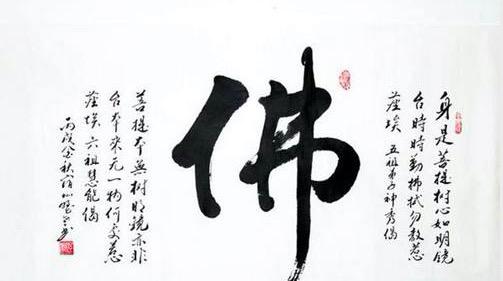 身是菩提樹心如明镜
台時時勤拂拭勿教惹
塵埃 五祖弟子神秀偈
佛
菩提本無樹明镜亦非
台本来无一物何處惹
塵埃 六祖慧能偈
丙戌金秋